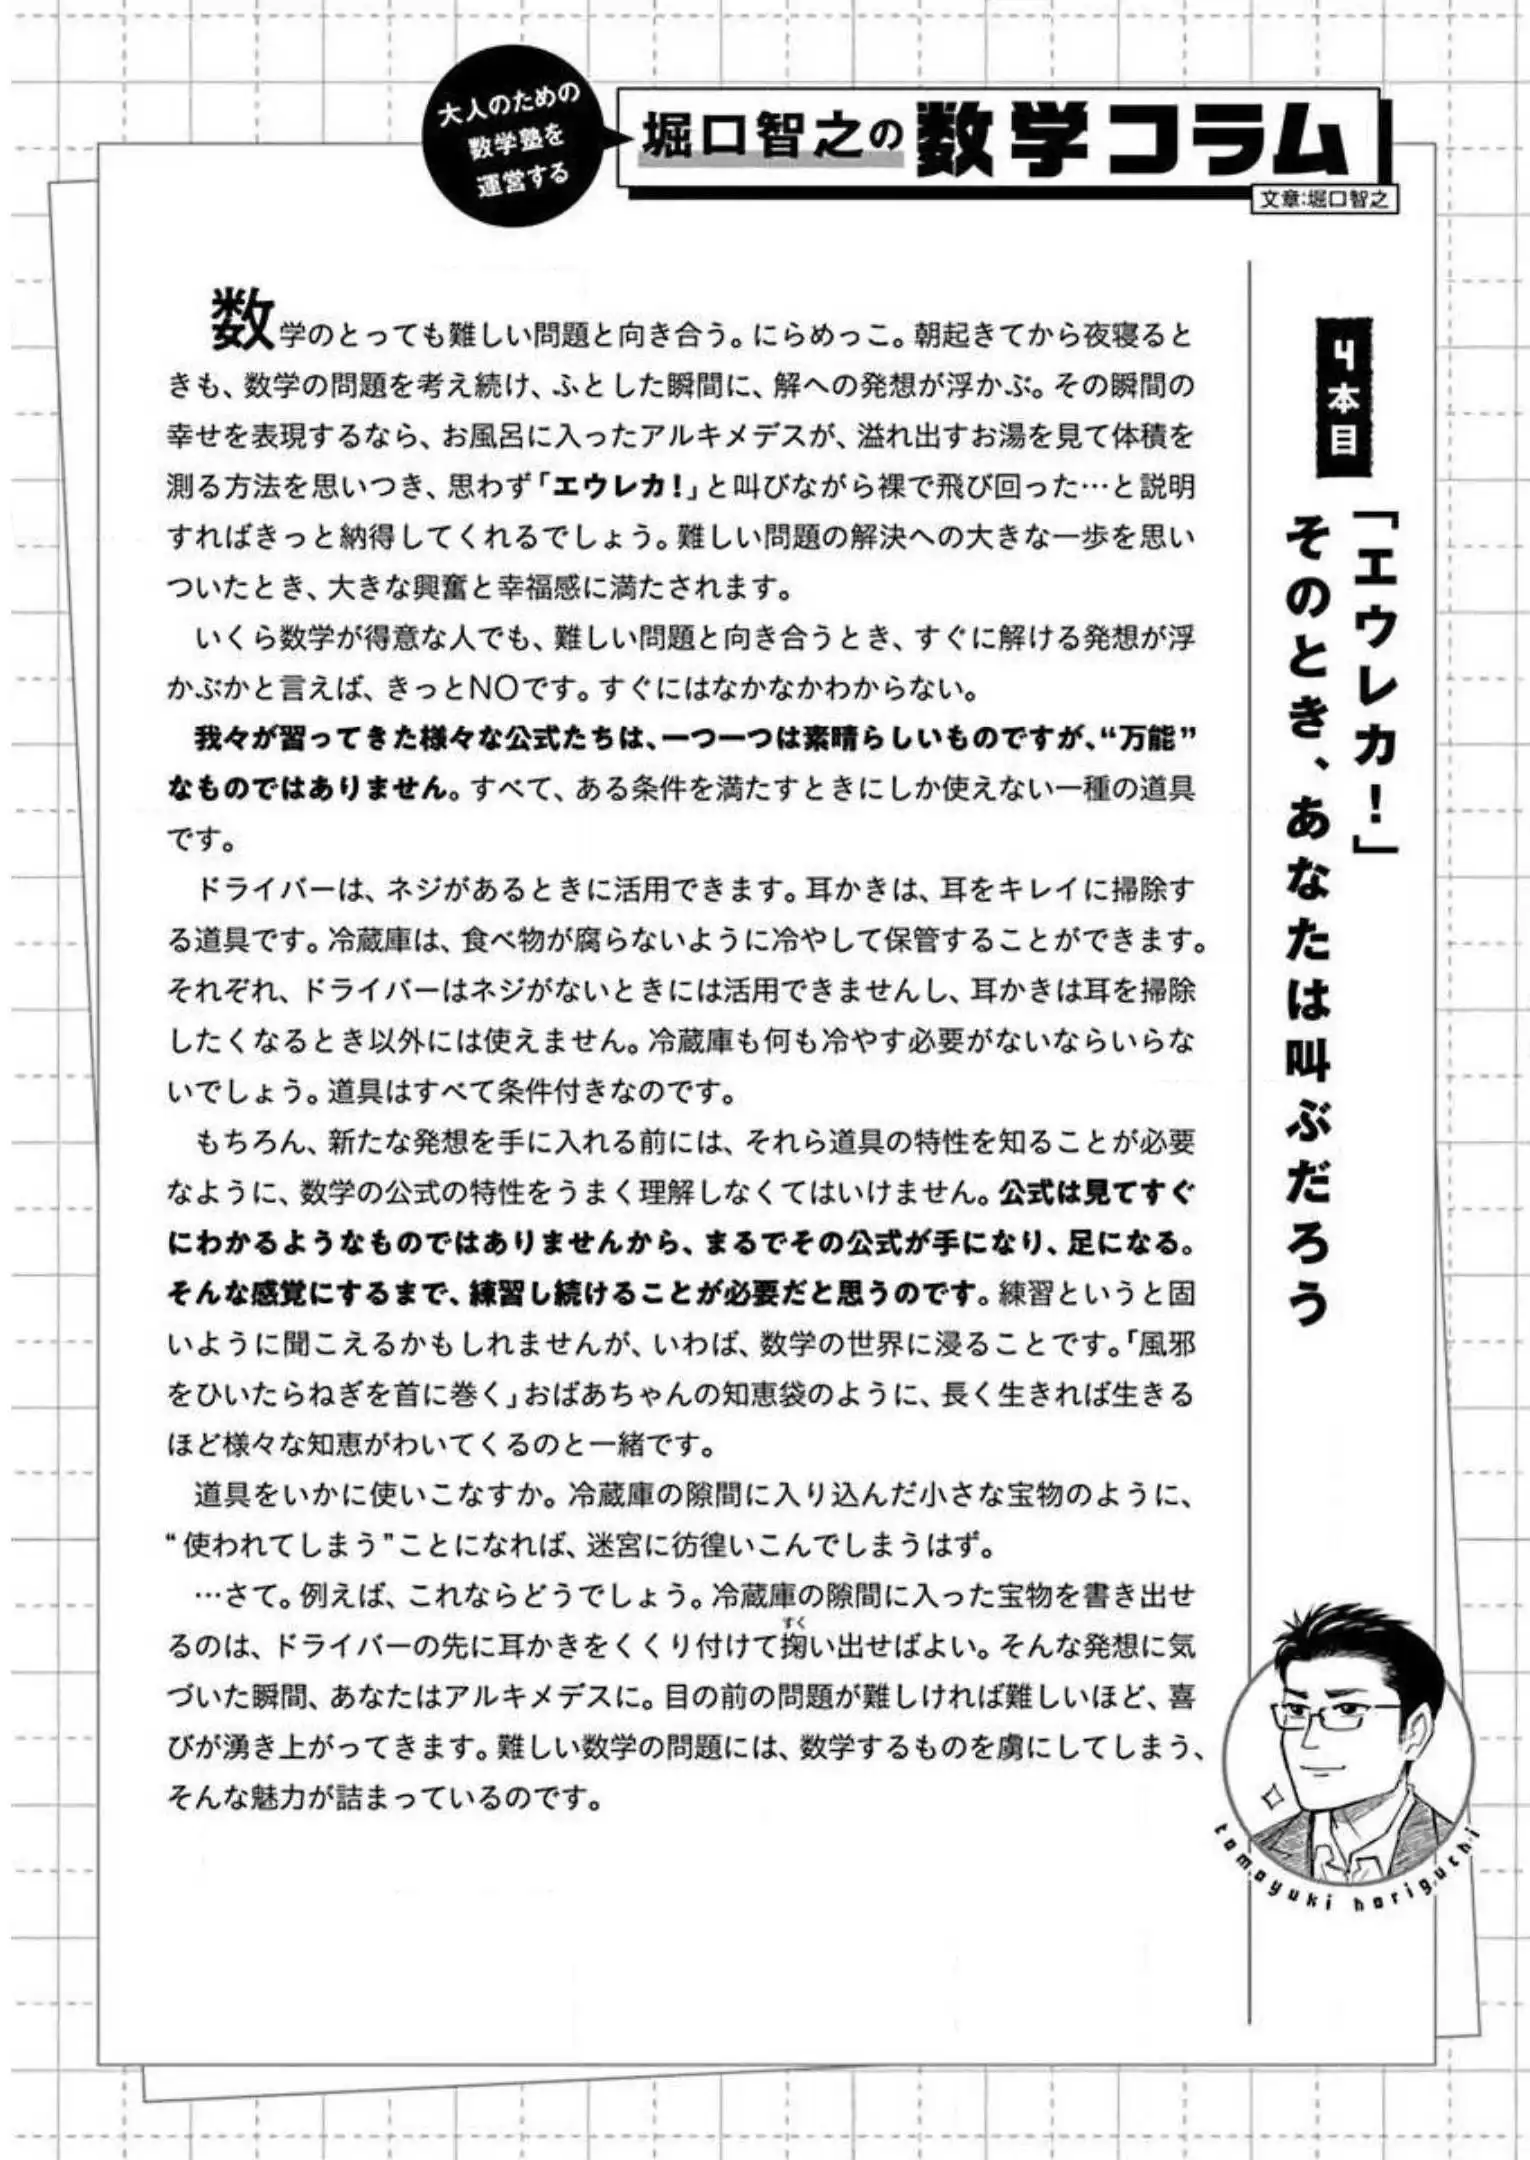 大人のための
数学塾を
運営する
堀口智之の数学コラム
文章:堀口智之
4本目
「エウレカ！」
そのとき、あなたは叫ぶだろう
数学のとっても難しい問題と向き合う。にらめっこ。朝起きてから夜寝ると
きも、数学の問題を考え続け、ふとした瞬間に、解への発想が浮かぶ。その瞬間の
幸せを表現するなら、お風呂に入ったアルキメデスが、溢れ出すお湯を見て体積を
測る方法を思いつき、思わず「エウレカ！」と叫びながら裸で飛び回った…と説明
すればきっと納得してくれるでしょう。難しい問題の解決への大きな一歩を思い
ついたとき、大きな興奮と幸福感に満たされます。
いくら数学が得意な人でも、難しい問題と向き合うとき、すぐに解ける発想が浮
かぶかと言えば、きっとNOです。すぐにはなかなかわからない。
我々が習ってきた様々な公式たちは、一つ一つは素晴らしいものですが、“万能”
なものではありません。すべて、ある条件を満たすときにしか使えない一種の道具
です。
ドライバーは、ネジがあるときに活用できます。耳かきは、耳をキレイに掃除す
る道具です。冷蔵庫は、食べ物が腐らないように冷やして保管することができます。
それぞれ、ドライバーはネジがないときには活用できませんし、耳かきは耳を掃除
したくなるとき以外には使えません。冷蔵庫も何も冷やす必要がないならいらな
いでしょう。道具はすべて条件付きなのです。
もちろん、新たな発想を手に入れる前には、それら道具の特性を知ることが必要
なように、数学の公式の特性をうまく理解しなくてはいけません。公式は見てすぐ
にわかるようなものではありませんから、まるでその公式が手になり、足になる。
そんな感覚にするまで、練習し続けることが必要だと思うのです。練習というと固
いように聞こえるかもしれませんが、いわば、数学の世界に浸ることです。「風邪
をひいたらねぎを首に巻く」おばあちゃんの知恵袋のように、長く生きれば生きる
ほど様々な知恵がわいてくるのと一緒です。
道具をいかに使いこなすか。冷蔵庫の隙間に入り込んだ小さな宝物のように、
“使われてしまう”ことになれば、迷宮に彷徨いこんでしまうはず。
…さて。例えば、これならどうでしょう。冷蔵庫の隙間に入った宝物を書き出せ
るのは、ドライバーの先に耳かきをくくり付けて掬い出せばよい。そんな発想に気
すく
づいた瞬間、あなたはアルキメデスに。目の前の問題が難しければ難しいほど、喜
びが湧き上がってきます。難しい数学の問題には、数学するものを虜にしてしまう、
そんな魅力が詰まっているのです。
tomoyuki horiguchi